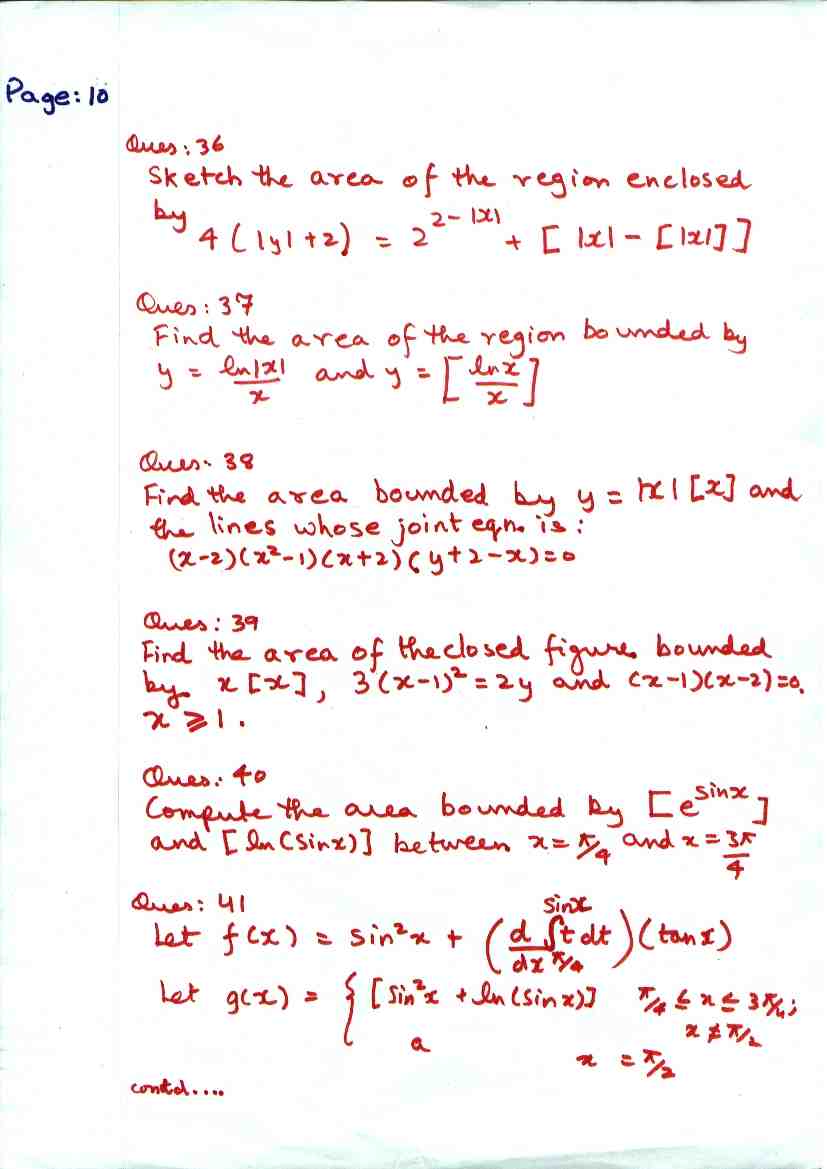 Page: 10
Ques: 36
Sketch the area of the region enclosed
by 4 ( |y| + 2) = 2^{2-|x|} + [ |x| - [|x|] ]
Ques: 37
Find the area of the region bounded by
y = \frac{ln|x|}{x} and y = [ \frac{lnx}{x} ]
Ques. 38
Find the area bounded by y = |x| [x] and
the lines whose joint eqn. is:
(x-2)(x²-1)(x+2)(y+2-x)=0
Ques: 39
Find the area of the closed figure bounded
by x[x], 3(x-1)² = 2y and (x-1)(x-2)=0.
x ⩾ 1.
Ques: 40
Compute the area bounded by [e^{sinx}]
and [ln(sinx)] between x = π/4 and x = \frac{3π}{4}
Ques: 41
Let f(x) = sin²x + ( \frac{d}{dx} ∫_{π/4}^{sinx} t dt ) (tanx)
Let g(x) = { [sin²x + ln(sinx)] π/4 ≤ x ≤ 3π/4;
x ≠ π/2
a x = π/2
contd....